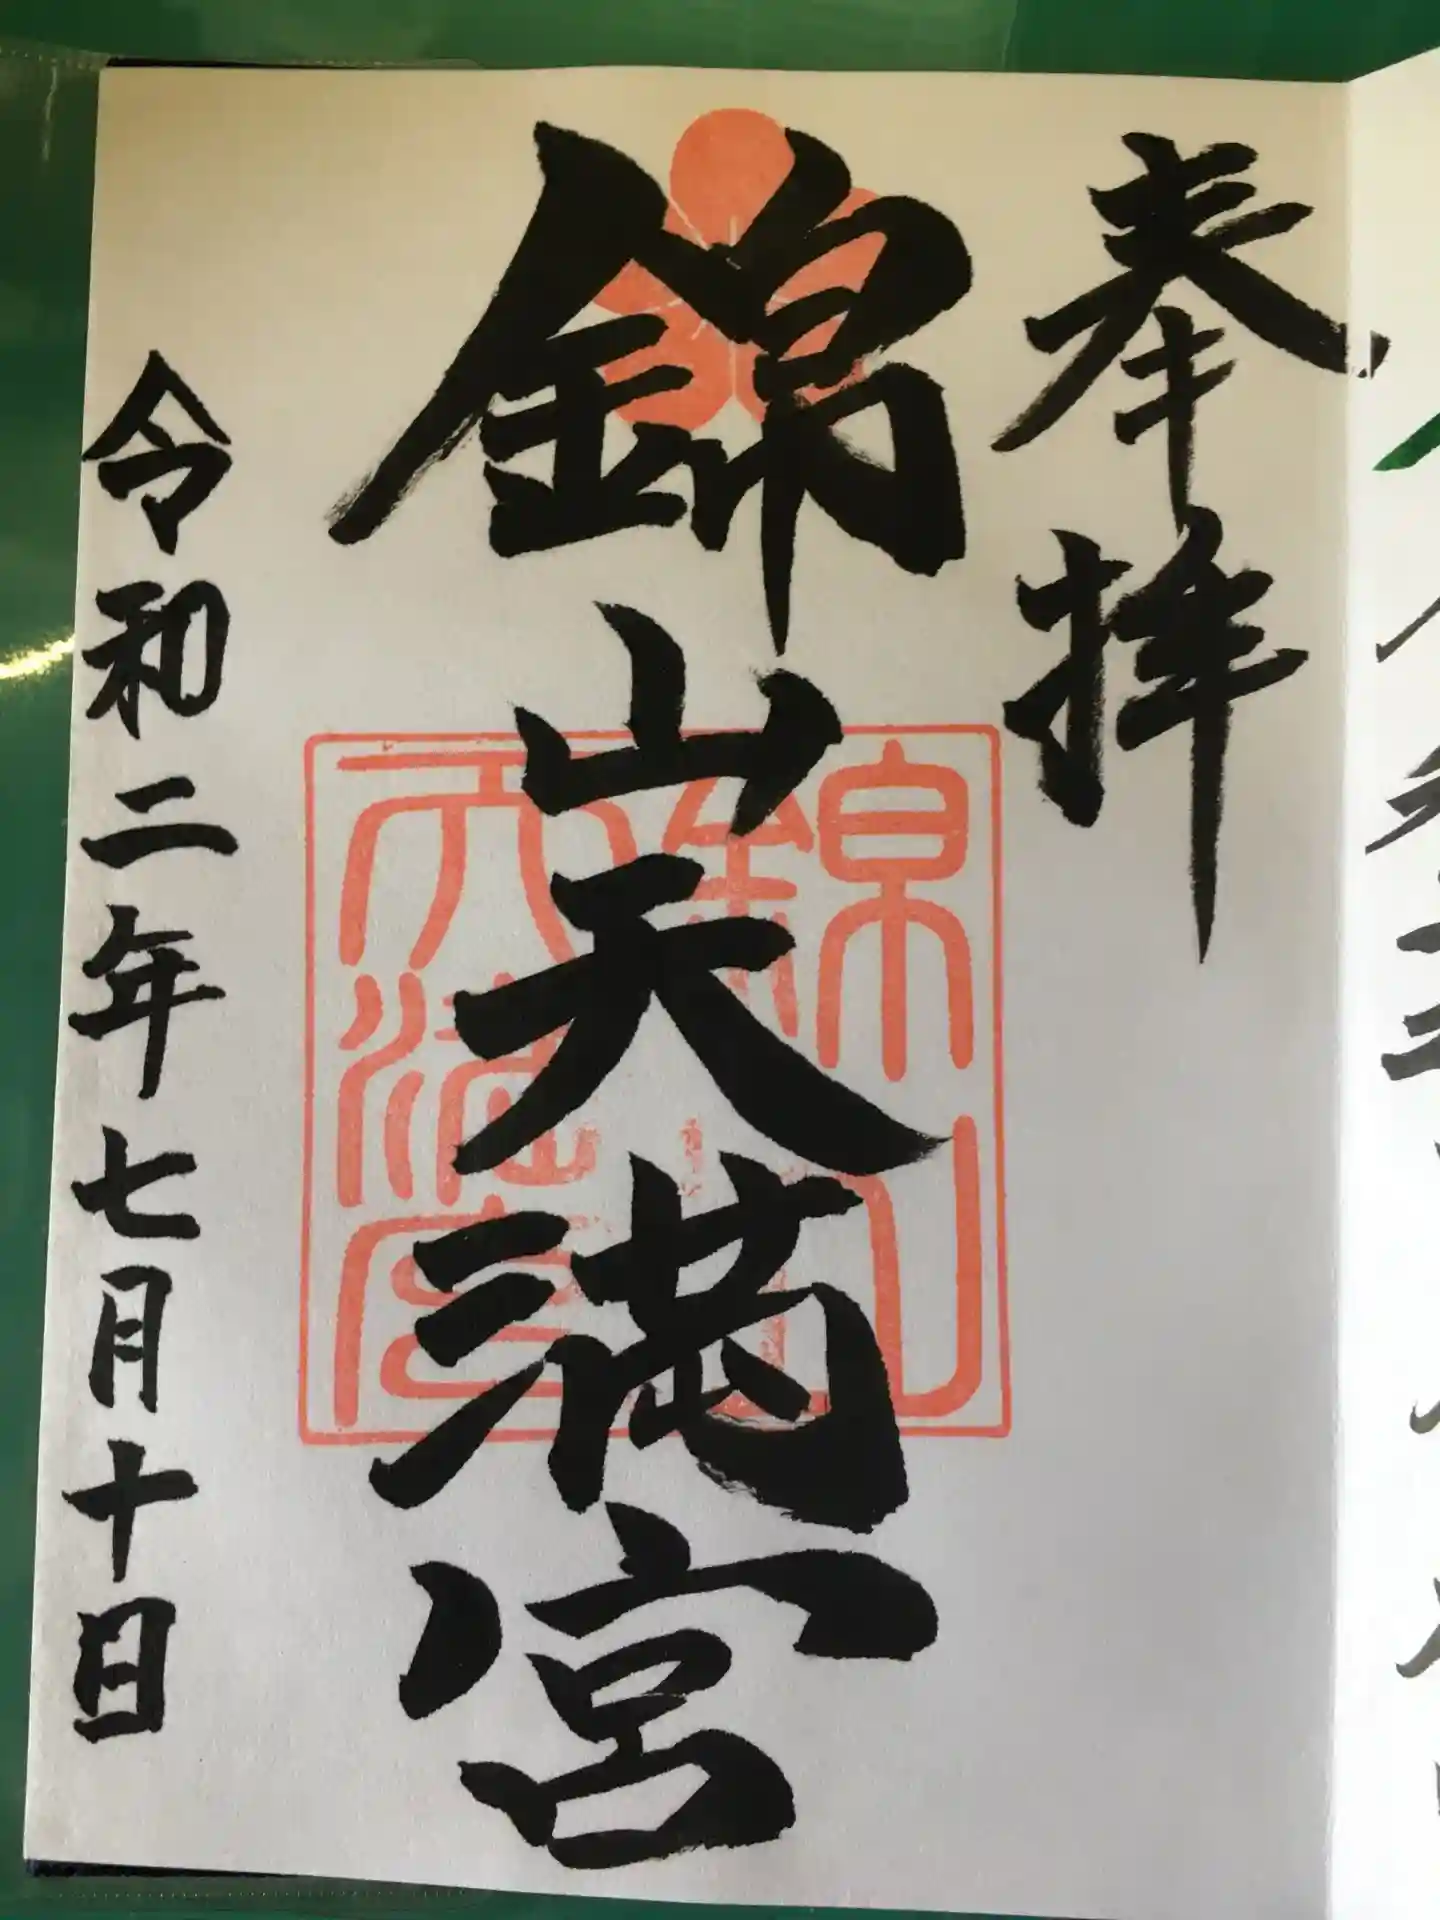 奉拝
錦山天満宮
錦山
天満宮
令和二年七月十日